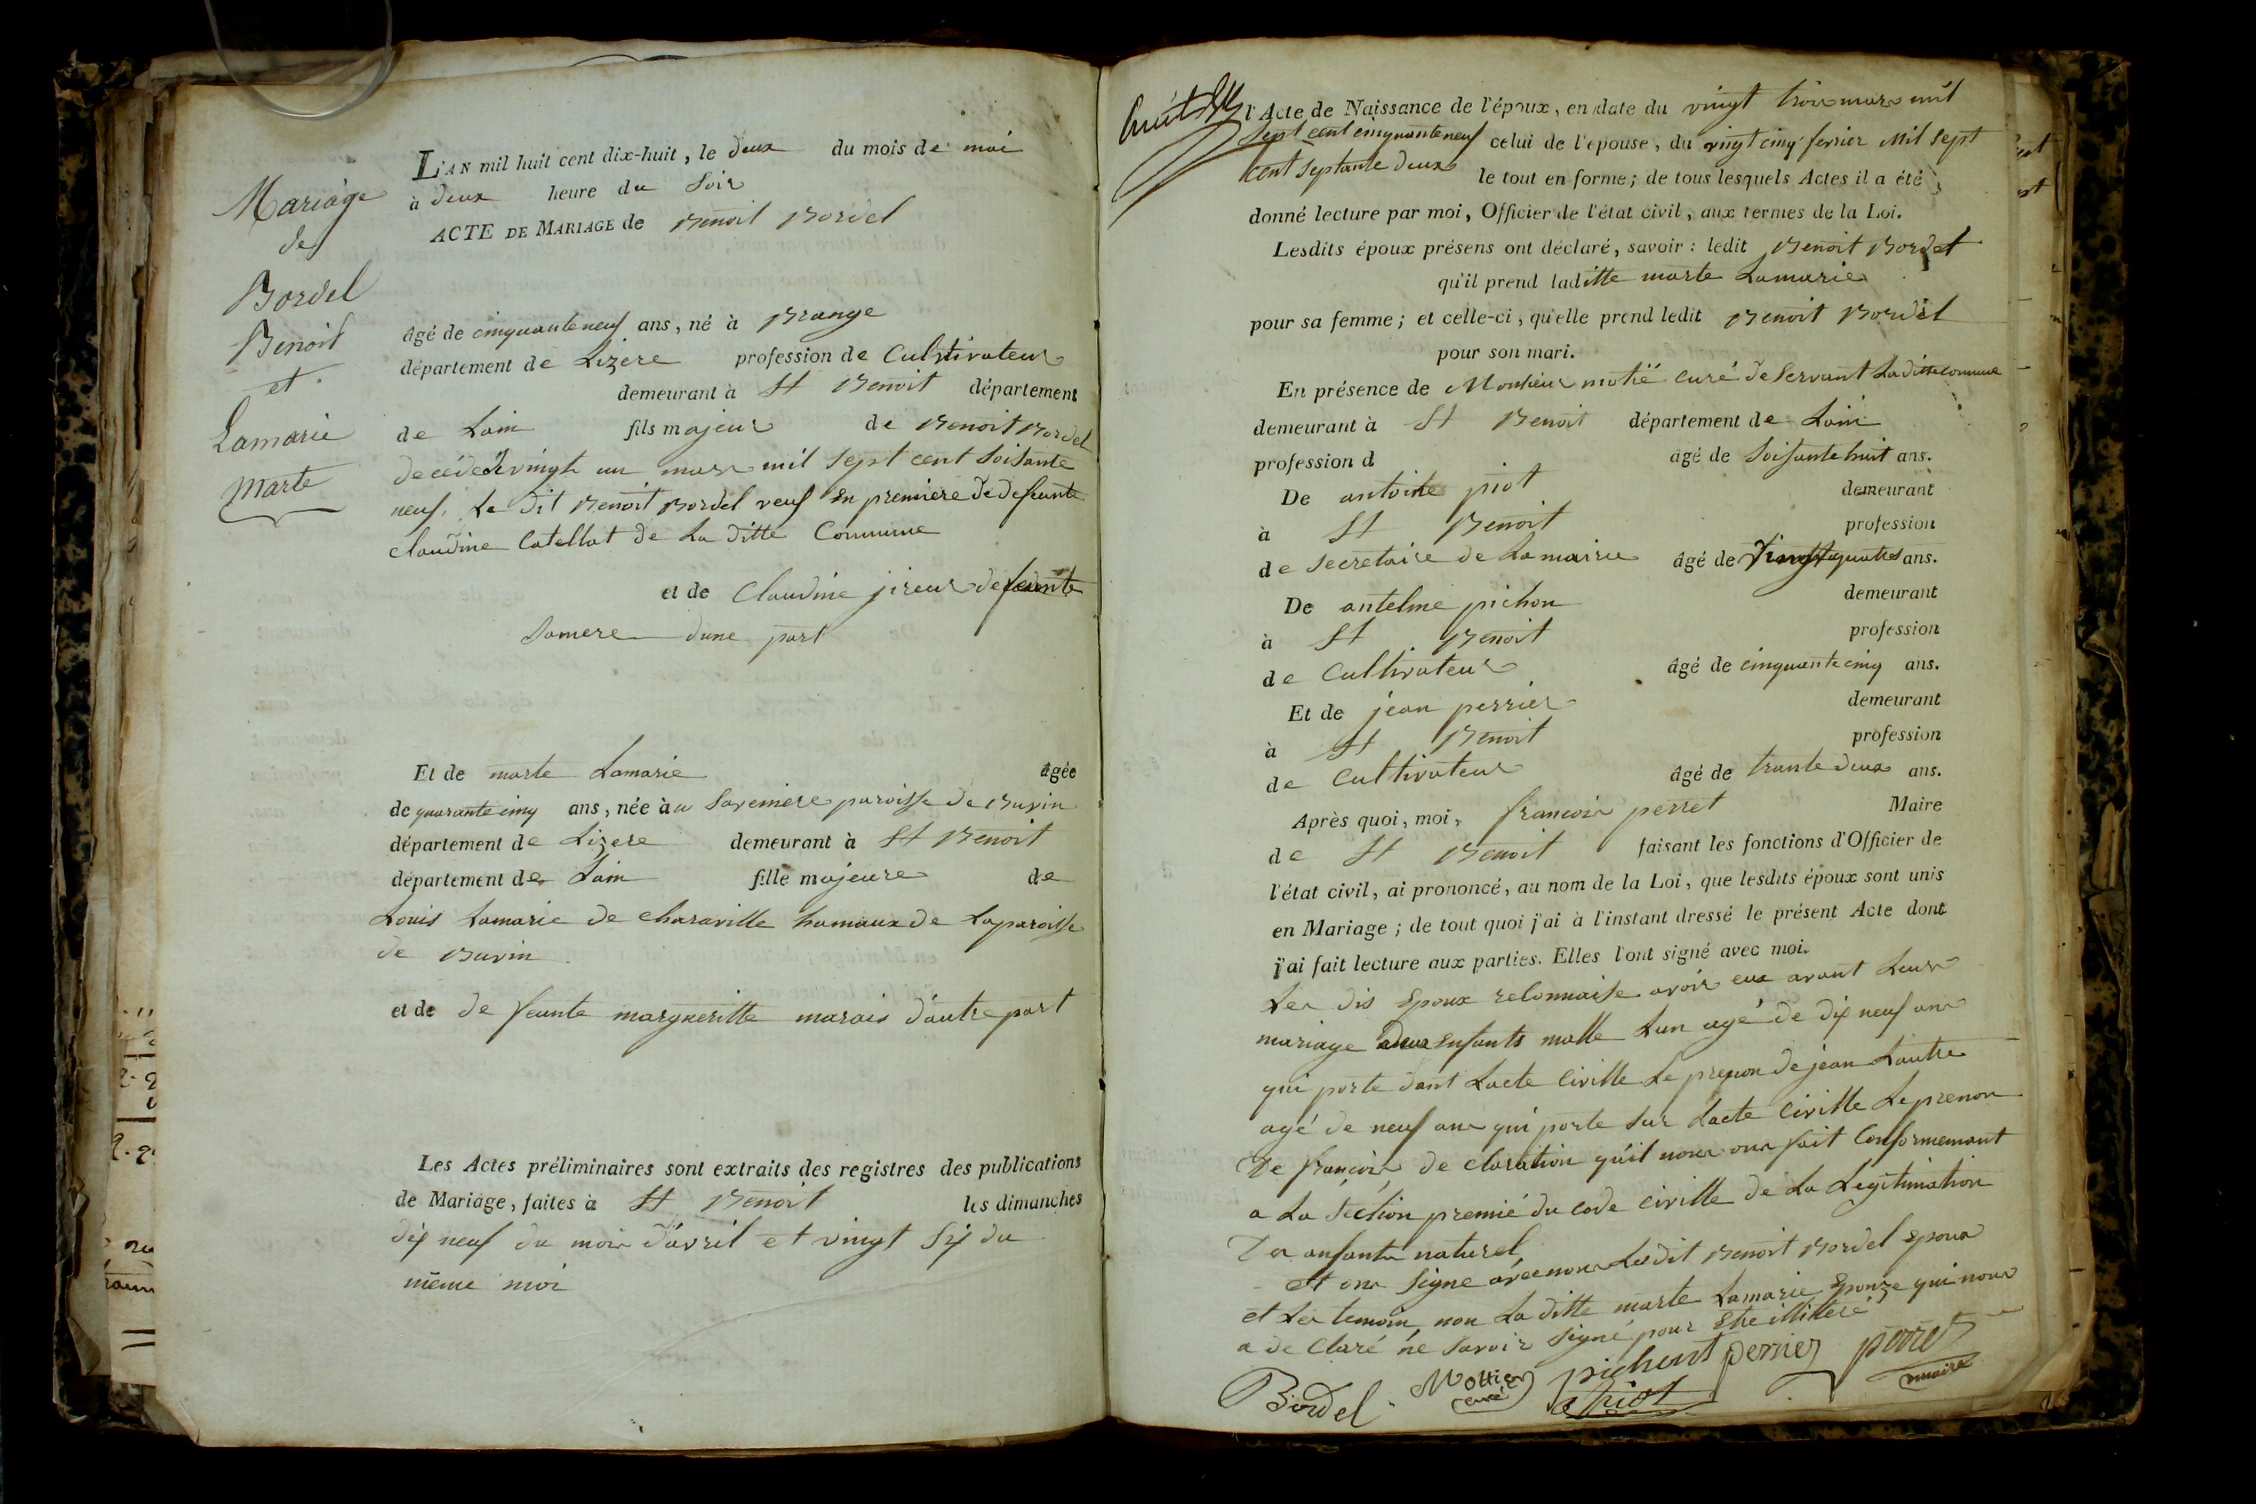 Mariage
de
Bordel
Benoit
et
Lamarie
Marte
L'AN mil huit cent dix-huit, le deux du mois de mai
à deux heure du Soir
ACTE DE MARIAGE de Benoit Bordel
âgé de cinquante neuf ans, né à Brange
département de Lizere profession de Cultivateur
demeurant à St Benoit département
de Lain fils majeur de Benoit Bordel
decédé vingt un mars mil sept cent soisante
neuf, Le dit Benoit Bordel veuf en premiere de defeunte
Claudine Catellat de La ditte Commune
et de Claudine jireur defeunte
Samere dune part
Et de marte Lamarie âgée
de quarante cinq ans, née àu Saveniere paroisse de Buvin
département de Lizere demeurant à St Benoit
département de Lain fille majeure de
Louis Lamarie de Charaville hamaux de Laparoisse
de Buvin
et de de feunte margueritte marais d'autre part
Les Actes préliminaires sont extraits des registres des publications
de Mariage, faites à St Benoit les dimanches
dix neuf du mois d'avril et vingt Six du
même moi
l'Acte de Naissance de l'époux, en date du vingt trois mars mil
Sept cent cinquante neuf celui de l'épouse, du vingt cinq fevrier Mil Sept
cent Septante deux le tout en forme; de tous lesquels Actes il a été
donné lecture par moi, Officier de l'état civil, aux termes de la Loi.
Lesdits époux présens ont déclaré, savoir: ledit Benoit Bordet
qu'il prend laditte marte Lamarie
pour sa femme; et celle-ci, qu'elle prend ledit Benoit Bordel
pour son mari.
En présence de Monsieur motié curé deservant Ladittecommune
demeurant à St Benoit département de Lain
profession d âgé de Soisante huit ans.
De antoine piot demeurant
à St Benoit profession
de Secretaire de Lamairie âgé de vingtquatre ans.
De antelme pichon demeurant
à St Benoit profession
de Cultivateur âgé de cinquante cinq ans.
Et de jean perrier demeurant
à St Benoit profession
de Cultivateur âgé de trante deux ans.
Après quoi, moi, francois perret Maire
de St Benoit faisant les fonctions d'Officier de
l'état civil, ai prononcé, au nom de la Loi, que lesdits époux sont unis
en Mariage; de tout quoi j'ai à l'instant dressé le présent Acte dont
j'ai fait lecture aux parties. Elles l'ont signé avec moi.
Les dis Epoux reconnaise avoir eux avant Leur
mariage deux enfants malle Lun agé de dix neuf ans
qui porte dant Lacte Civille Le prenon de jean Lautre
agé de neuf ans qui porte sur Lacte Civille Le prenon
De francois de claration quil nous ons fait Conformemant
a La Section premié du Code Civille de La Legitimation
Des anfants naturel
et ons Signe avec nous Ledit Benoit Bordel Epoux
et Les temoin, non La ditte marte Lamarie Epouze qui nous
a de Claré ne Savoir Signé pour Etre illiteré
Bordel Mottier curé pichont perrier perret maire
Piot